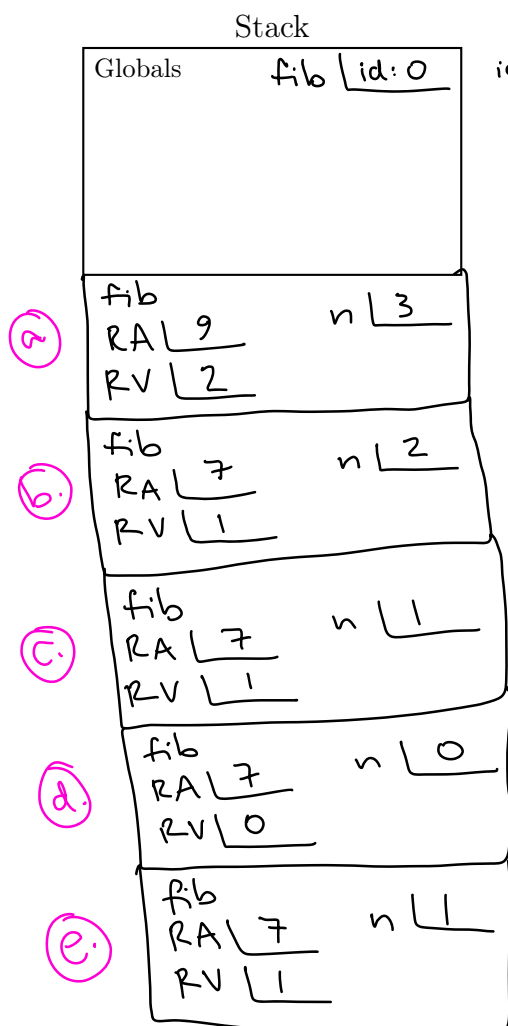 Stack
Globals fib id: 0
a
fib n 3
RA 9
RV 2
b.
fib n 2
RA 7
RV 1
c.
fib n 1
RA 7
RV 1
d.
fib n 0
RA 7
RV 0
e.
fib n 1
RA 7
RV 1